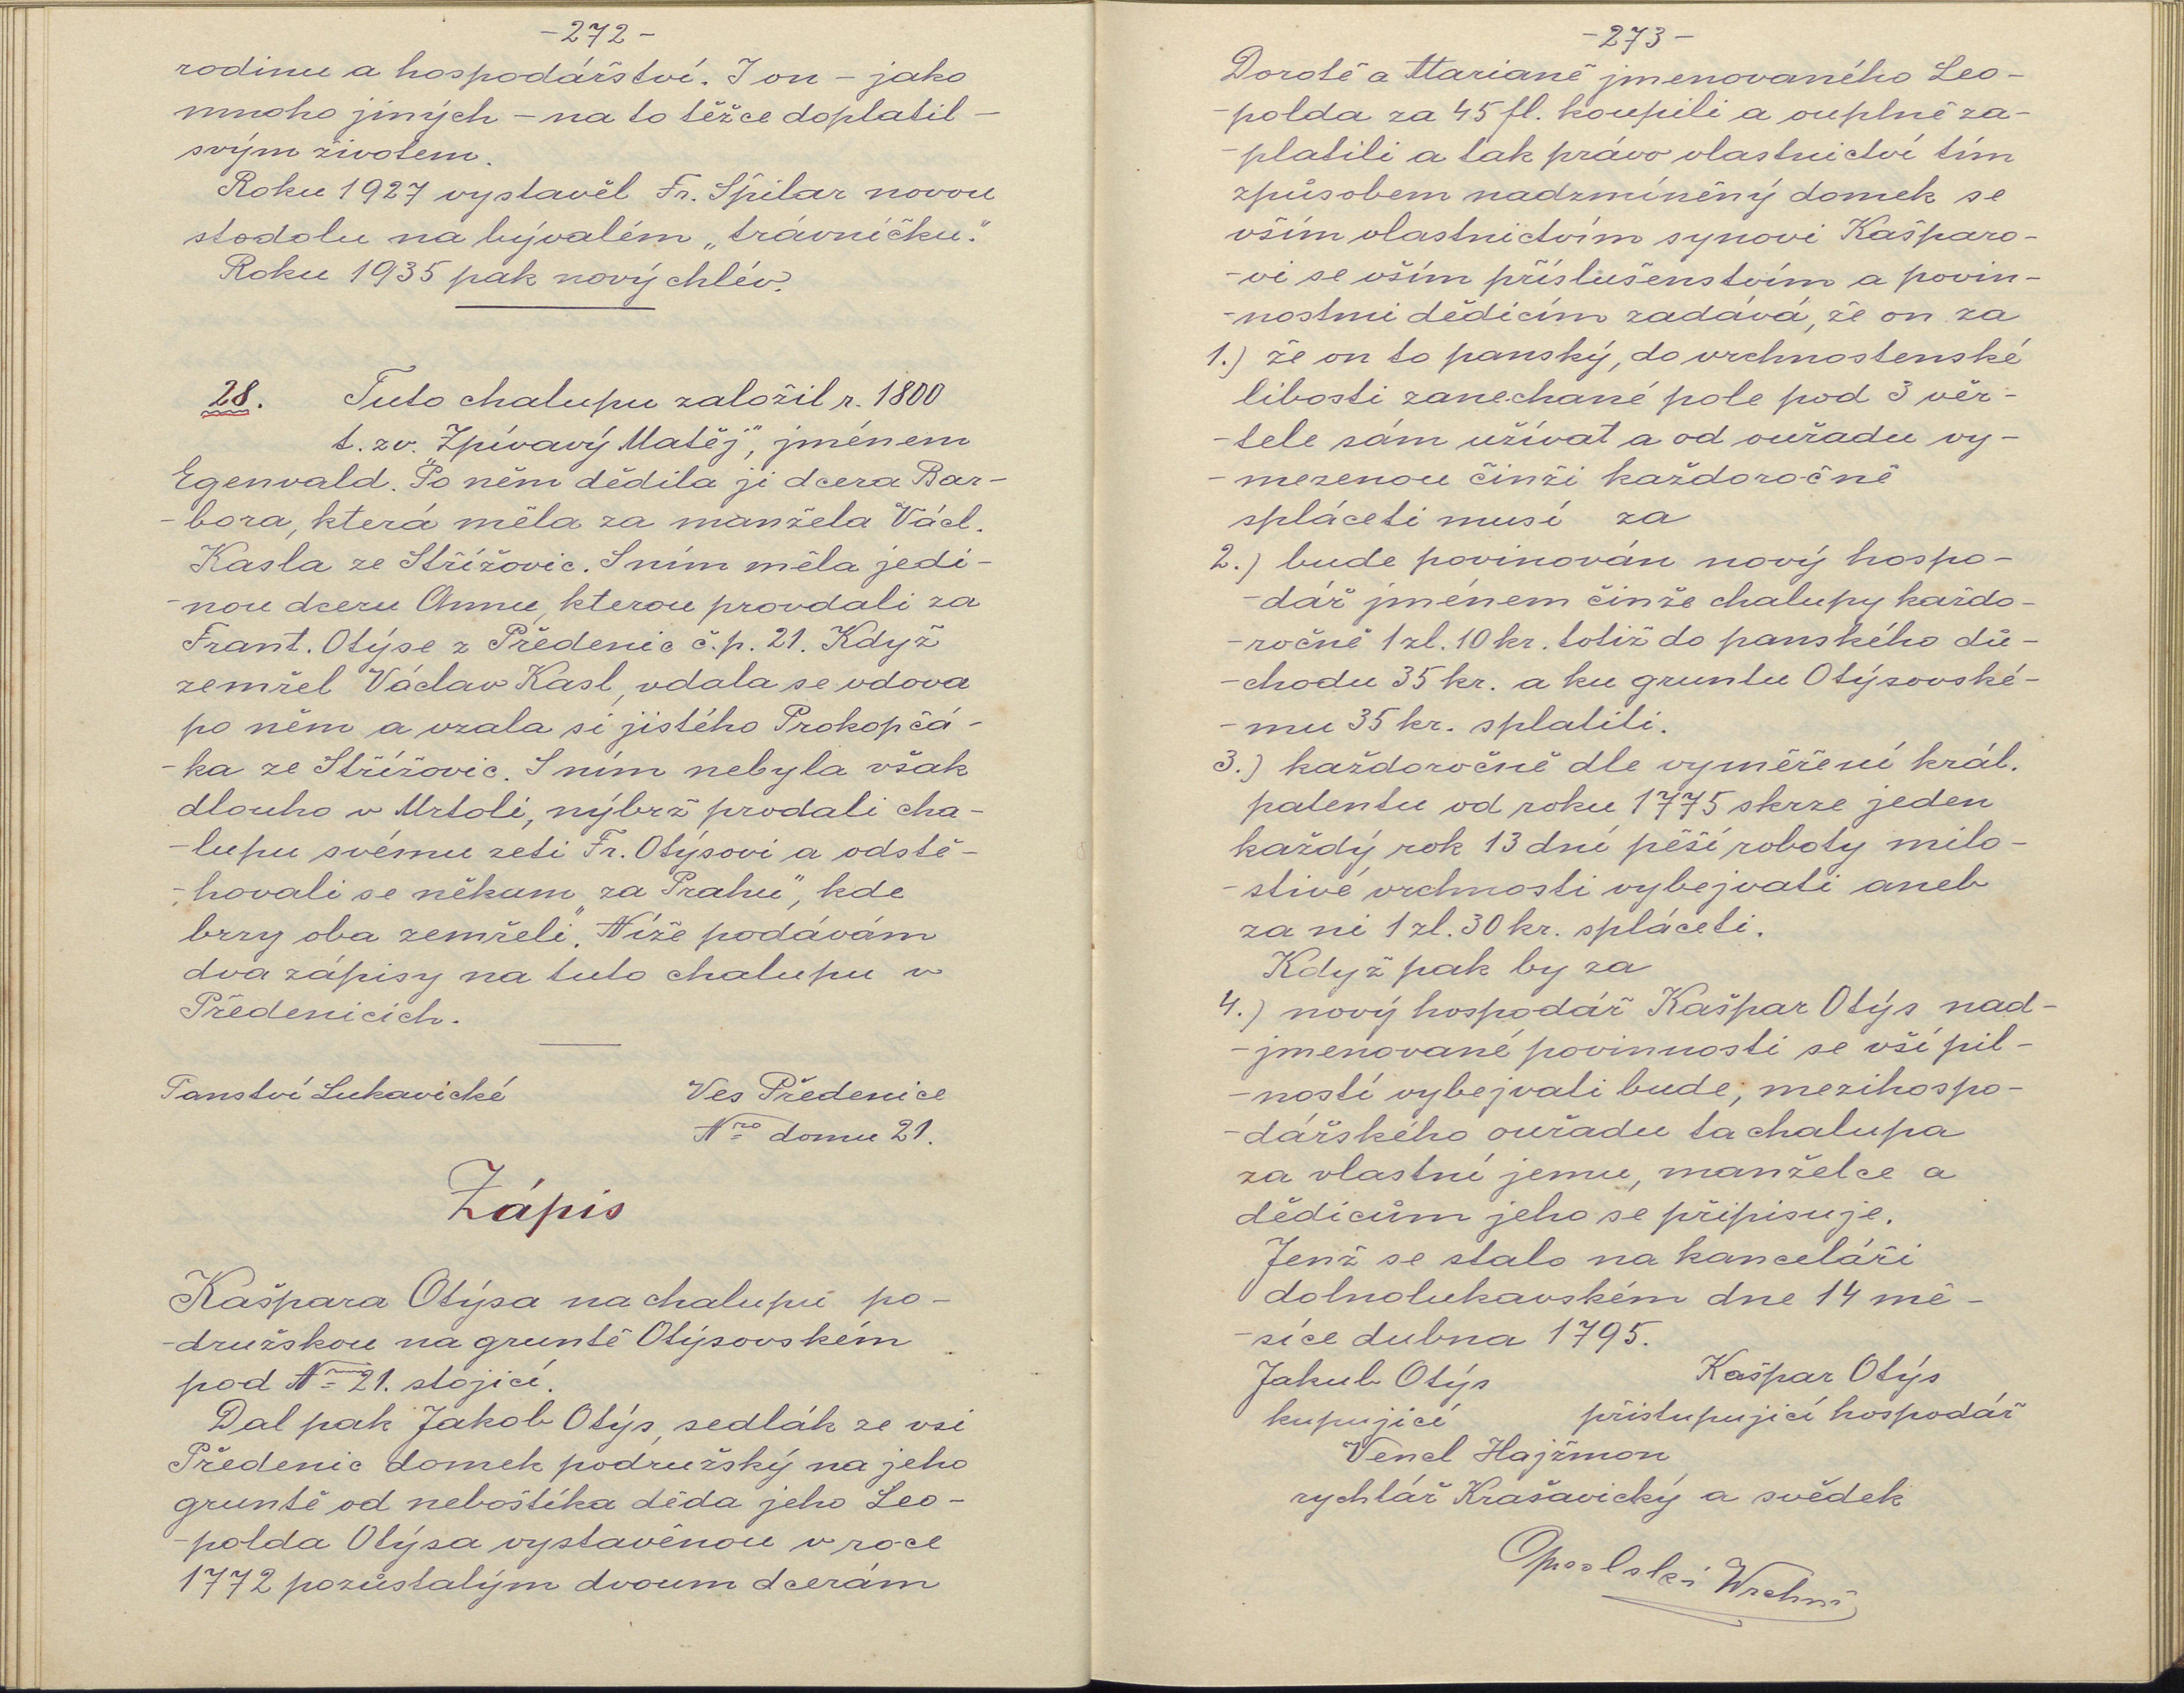 -272-
rodinu a hospodářství. I on - jako
mnoho jiných - na to těžce doplatil -
svým životem.
Roku 1927 vystavěl Fr. Špilar novou
stodolu na bývalém „trávníčku."
Roku 1935 pak nový chlév.
28. Tuto chalupu založil r. 1800
t. zv. „Zpívavý Matěj", jménem
Egenvald. Po něm dědila ji dcera Bar-
-bora, která měla za manžela Václ.
Kasla ze Střížovic. S ním měla jedi-
-nou dceru Annu, kterou provdali za
Frant. Otýse z Předenic č.p. 21. Když
zemřel Václav Kasl, vdala se vdova
po něm a vzala si jistého Prokopčá-
-ka ze Střížovic. S ním nebyla však
dlouho v Mrtoli, nýbrž prodali cha-
-lupu svému zeti Fr. Otýsovi a odstě-
-hovali se někam „za Prahu", kde
brzy oba zemřeli. Níže podávám
dva zápisy na tuto chalupu v
Předenicích.
Panství Lukavické Ves Předenice
Nro domu 21.
Zápis
Kašpara Otýsa na chalupu po-
-družskou na gruntě Otýsovském
pod Nro 21. stojící.
Dal pak Jakob Otýs, sedlák ze vsi
Předenic domek podružský na jeho
gruntě od neboštíka děda jeho Leo-
-polda Otýsa vystavěnou v roce
1772 pozůstalým dvoum dcerám
-273-
Dorotě a Marianě jmenovaného Leo-
-polda za 45 fl. koupili a ouplně za-
-platili a tak právo vlastnictví tím
způsobem nadzmíněný domek se
vším vlastnictvím synovi Kašparo-
-vi se vším příslušenstvím a povin-
-nostmi dědicím zadává, že on za
1.) že on to panský, do vrchnostenské
libosti zanechané pole pod 3 věr-
-tele sám užívat a od ouřadu vy-
-mezenou činži každoročně
spláceti musí za
2.) bude povinován nový hospo-
-dář jménem činže chalupy každo-
-ročně 1 zl. 10 kr. totiž do panského dů-
-chodu 35 kr. a ku gruntu Otýsovské-
-mu 35 kr. splatiti.
3.) každoročně dle vyměření král.
patentu od roku 1775 skrze jeden
každý rok 13 dní pěší roboty milo-
-stivé vrchnosti vybejvati aneb
za ni 1 zl. 30 kr. spláceti.
Když pak by za
4.) nový hospodář Kašpar Otýs nad-
-jmenované povinnosti se vší pil-
-ností vybejvati bude, mezihospo-
-dářského ouřadu ta chalupa
za vlastní jemu, manželce a
dědicům jeho se připisuje.
Jenž se stalo na kanceláři
dolnolukavském dne 14 mě-
-síce dubna 1795.
Jakub Otýs Kašpar Otýs
kupující přistupující hospodář
Vencl Hajžmon
rychtář Krašavický a svědek
Wrchní